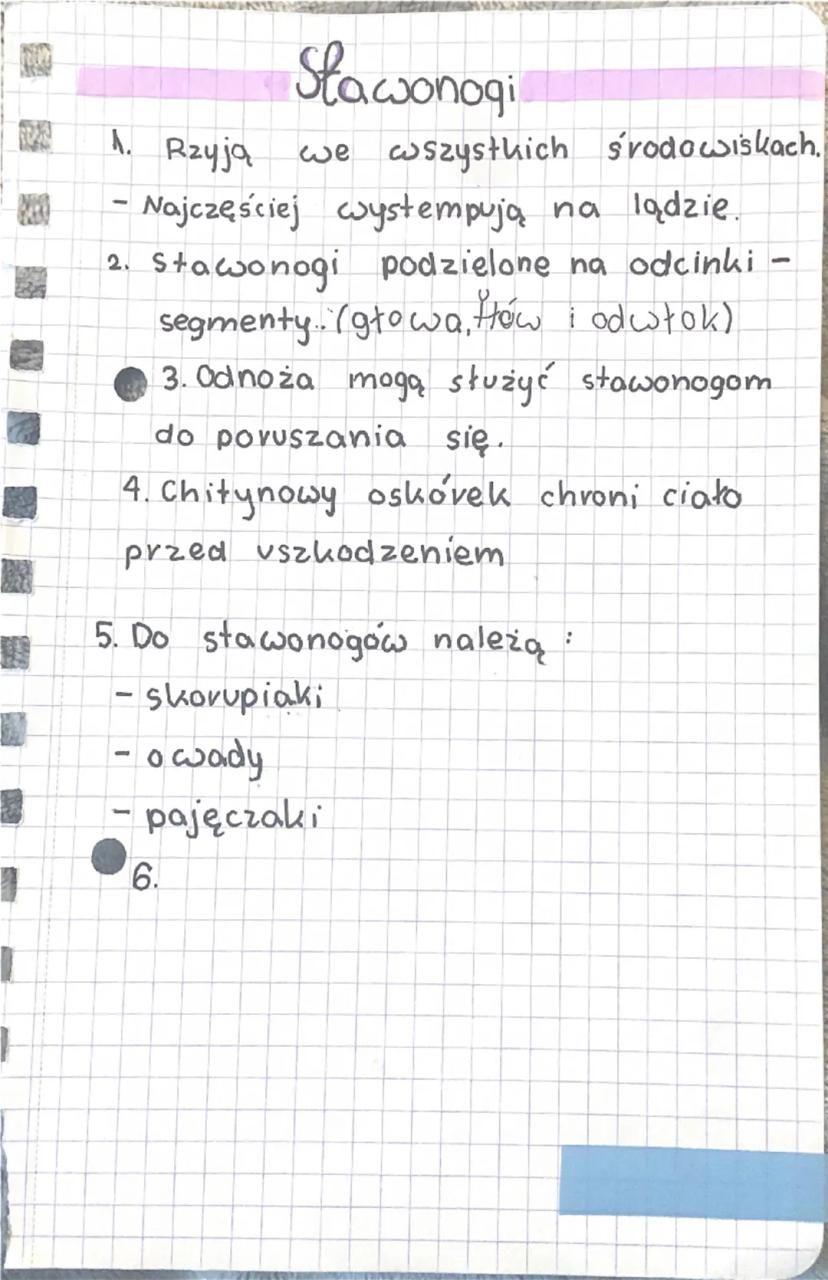 Stawonogi
1. Rzyją we wszystkich środowiskach.
- Najczęściej wystempują na lądzie.
2. Stawonogi podzielone na odcinki -
segmenty.. (głowa, tłów i odwłok)
3. Odnoża mogą służyć stawonogom
do poruszania się.
4. Chitynowy oskórek chroni ciało
przed uszkodzeniem
5. Do stawonogów należą :
- skorupiaki
- owady
- pajęczaki
6.